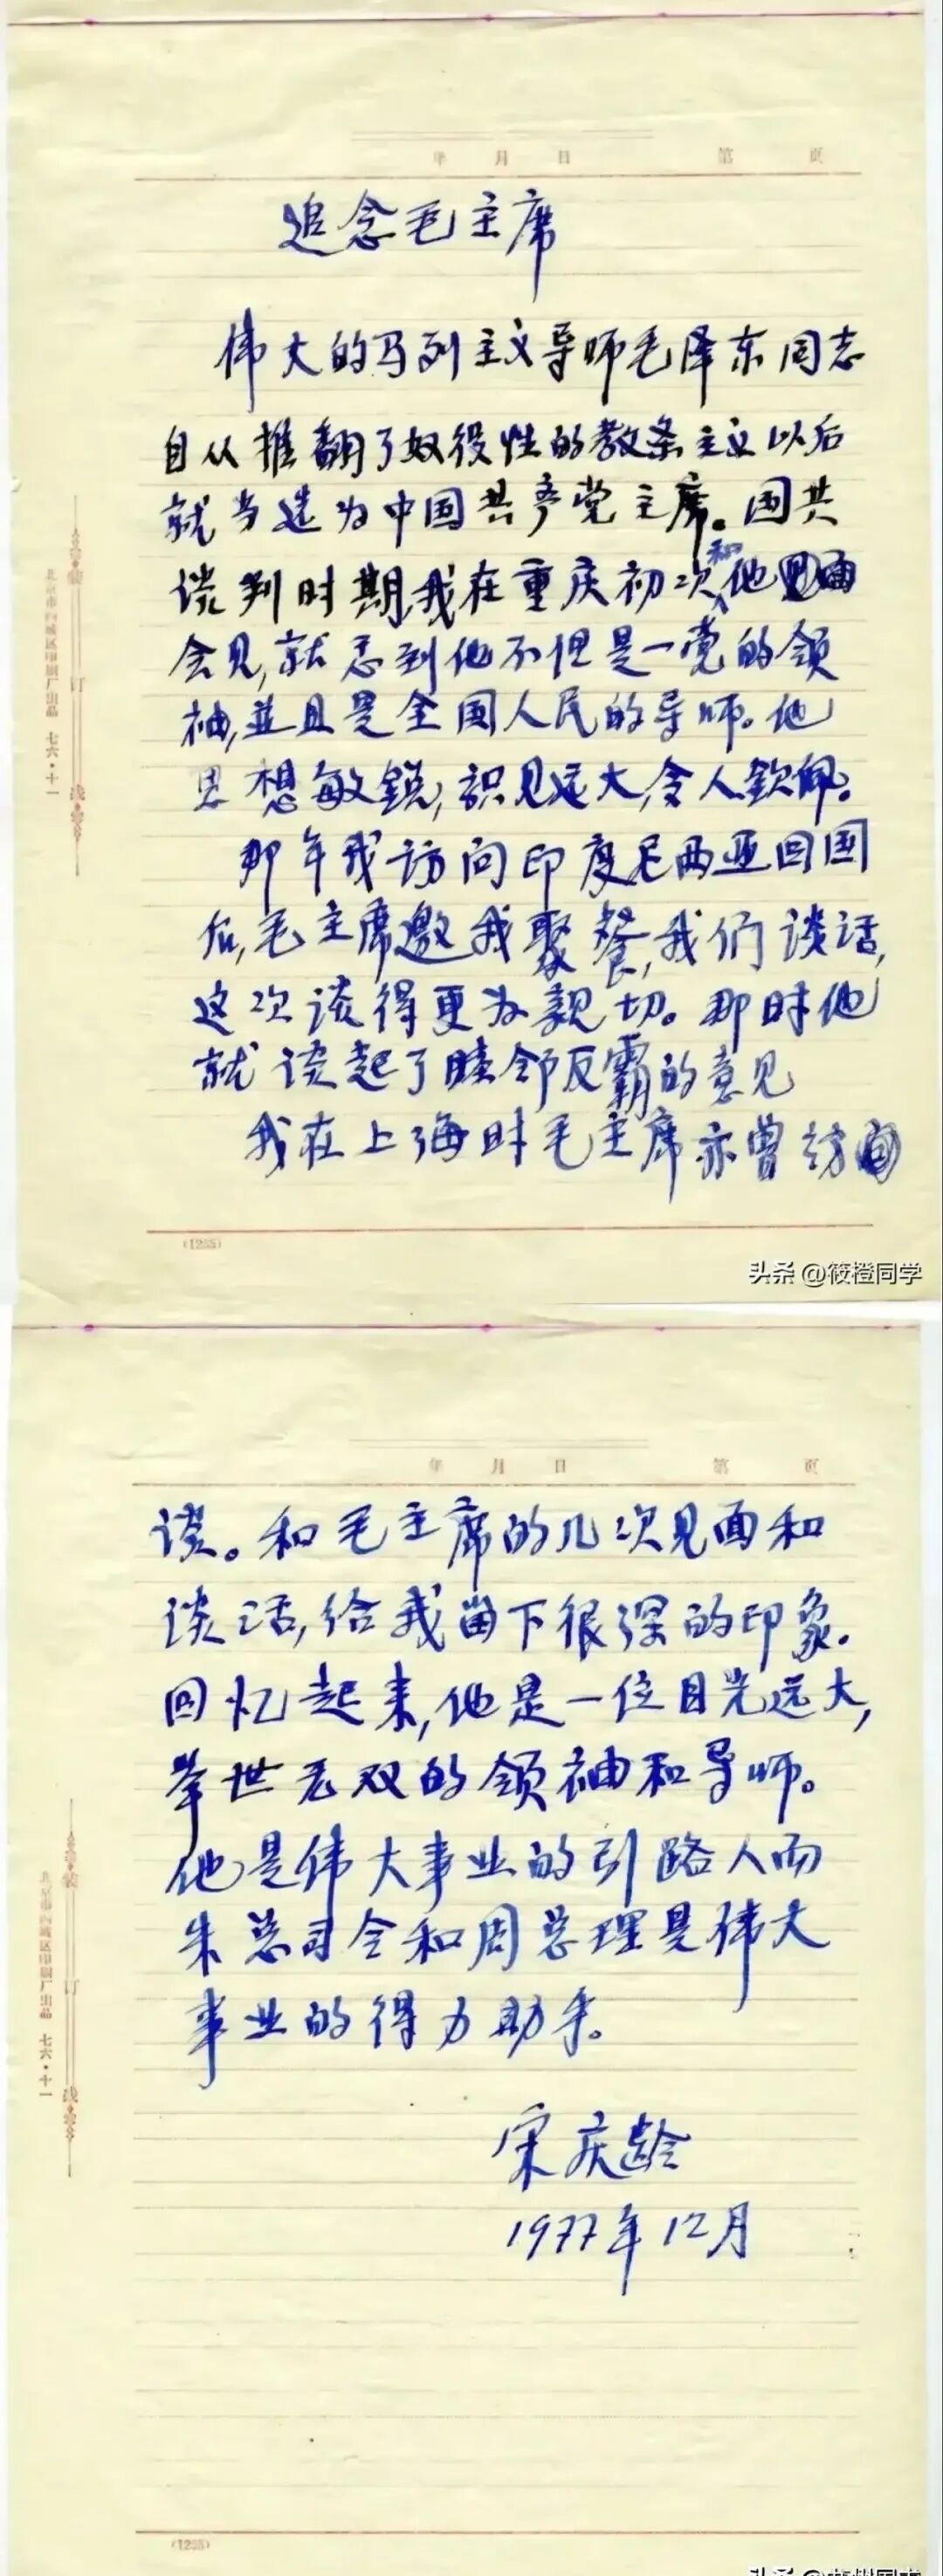 年 月 日 第 页
追念毛主席
伟大的马列主义导师毛泽东同志
自从推翻了奴役性的教条主义以后
就当选为中国共产党主席。国共
谈判时期,我在重庆初次和他
会见,就 到他不但是一党的领
袖,並且是全国人民的导师。他
思想敏锐,识见远大,令人钦佩。
那年我访问印度尼西亚回国
后,毛主席邀我聚餐,我们谈话,
这次谈得更为亲切。那时他
就谈起了睦邻反霸的意见
我在上海时毛主席亦曾访
北京市西城区印刷厂出品 七六·十一
装 订 线
(1255)
头条 @筱橙同学
年 月 日 第 页
谈。和毛主席的几次见面和
谈话,给我留下很深的印象.
回忆起来,他是一位目光远大,
举世无双的领袖和导师。
他是伟大事业的引路人而
朱总司令和周总理是伟大
事业的得力助手。
宋庆龄
1977年12月
北京市西城区印刷厂出品 七六·十一
装 订 线
(1255)